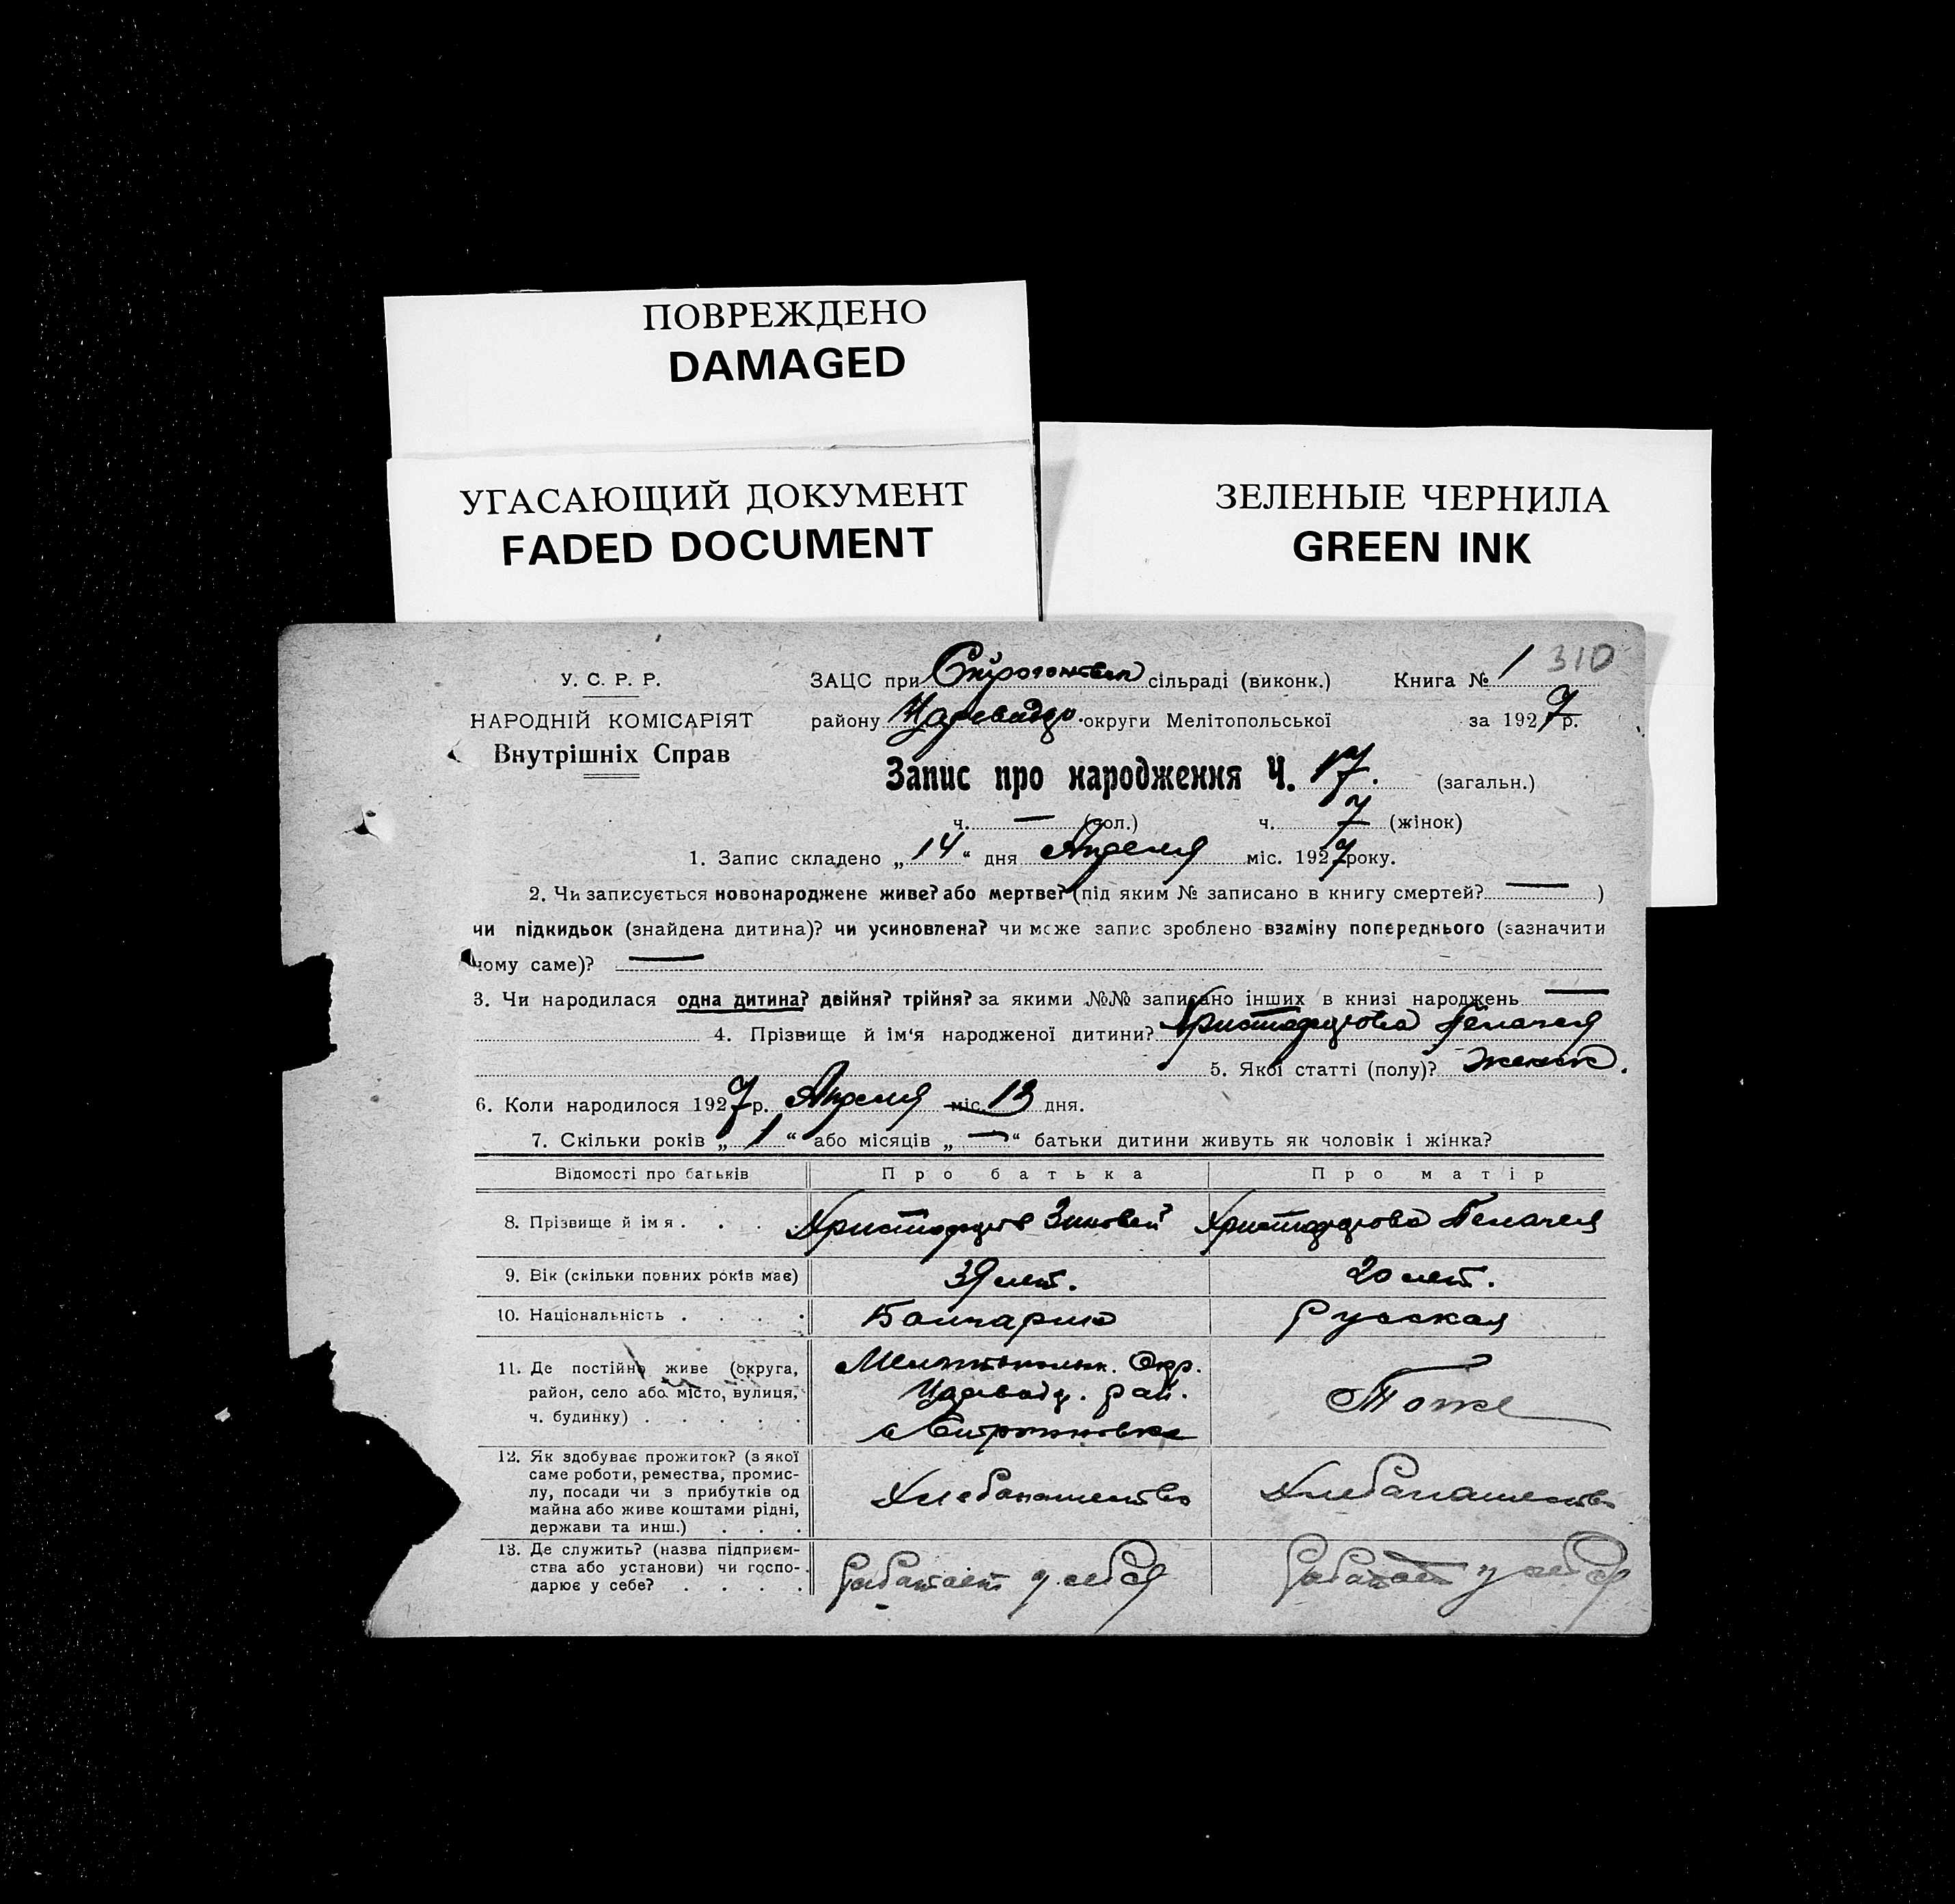 ПОВРЕЖДЕНО
DAMAGED
УГАСАЮЩИЙ ДОКУМЕНТ
FADED DOCUMENT
ЗЕЛЕНЫЕ ЧЕРНИЛА
GREEN INK
310
У. С. Р. Р.
НАРОДНІЙ КОМІСАРІЯТ
Внутрішніх Справ
ЗАЦС при сільраді (виконк.) Книга № 1
району округи Мелітопольської за 1927 р.
Запис про народження Ч. 17. (загальн.)
ч. — (чол.) ч. 7 (жінок)
1. Запис складено „14“ дня Апреля міс. 1927 року.
2. Чи записується новонароджене живе? або мертве? (під яким № записано в книгу смертей? — )
чи підкидьок (знайдена дитина)? чи усиновлена? чи може запис зроблено взаміну попереднього (зазначити
чому саме)? —
3. Чи народилася одна дитина? двійня? трійня? за якими №№ записано інших в книзі народжень —
4. Прізвище й ім'я народженої дитини? Пелагея
5. Якої статті (полу)? женск.
6. Коли народилося 1927 р. Апреля міс. 13 дня.
7. Скільки років „1“ або місяців „—“ батьки дитини живуть як чоловік і жінка?
Відомості про батьків Про батька Про матір
8. Прізвище й імя . . . . Зиновей Пелагея
9. Вік (скільки повних років має) 39 лет. 20 лет.
10. Національність . . . . Болгарин Русская
11. Де постійно живе (округа,
район, село або місто, вулиця,
ч. будинку) . . . . .
Мелитопольск. Окр.
рай.
Тоже
12. Як здобуває прожиток? (з якої
саме роботи, ремества, промис-
лу, посади чи з прибутків од
майна або живе коштами рідні,
держави та инш.) . . .
Хлебопашество Хлебопашество
13. Де служить? (назва підприєм-
ства або установи) чи госпо-
дарює у себе? . . . .
Работает у себя Работает у себя